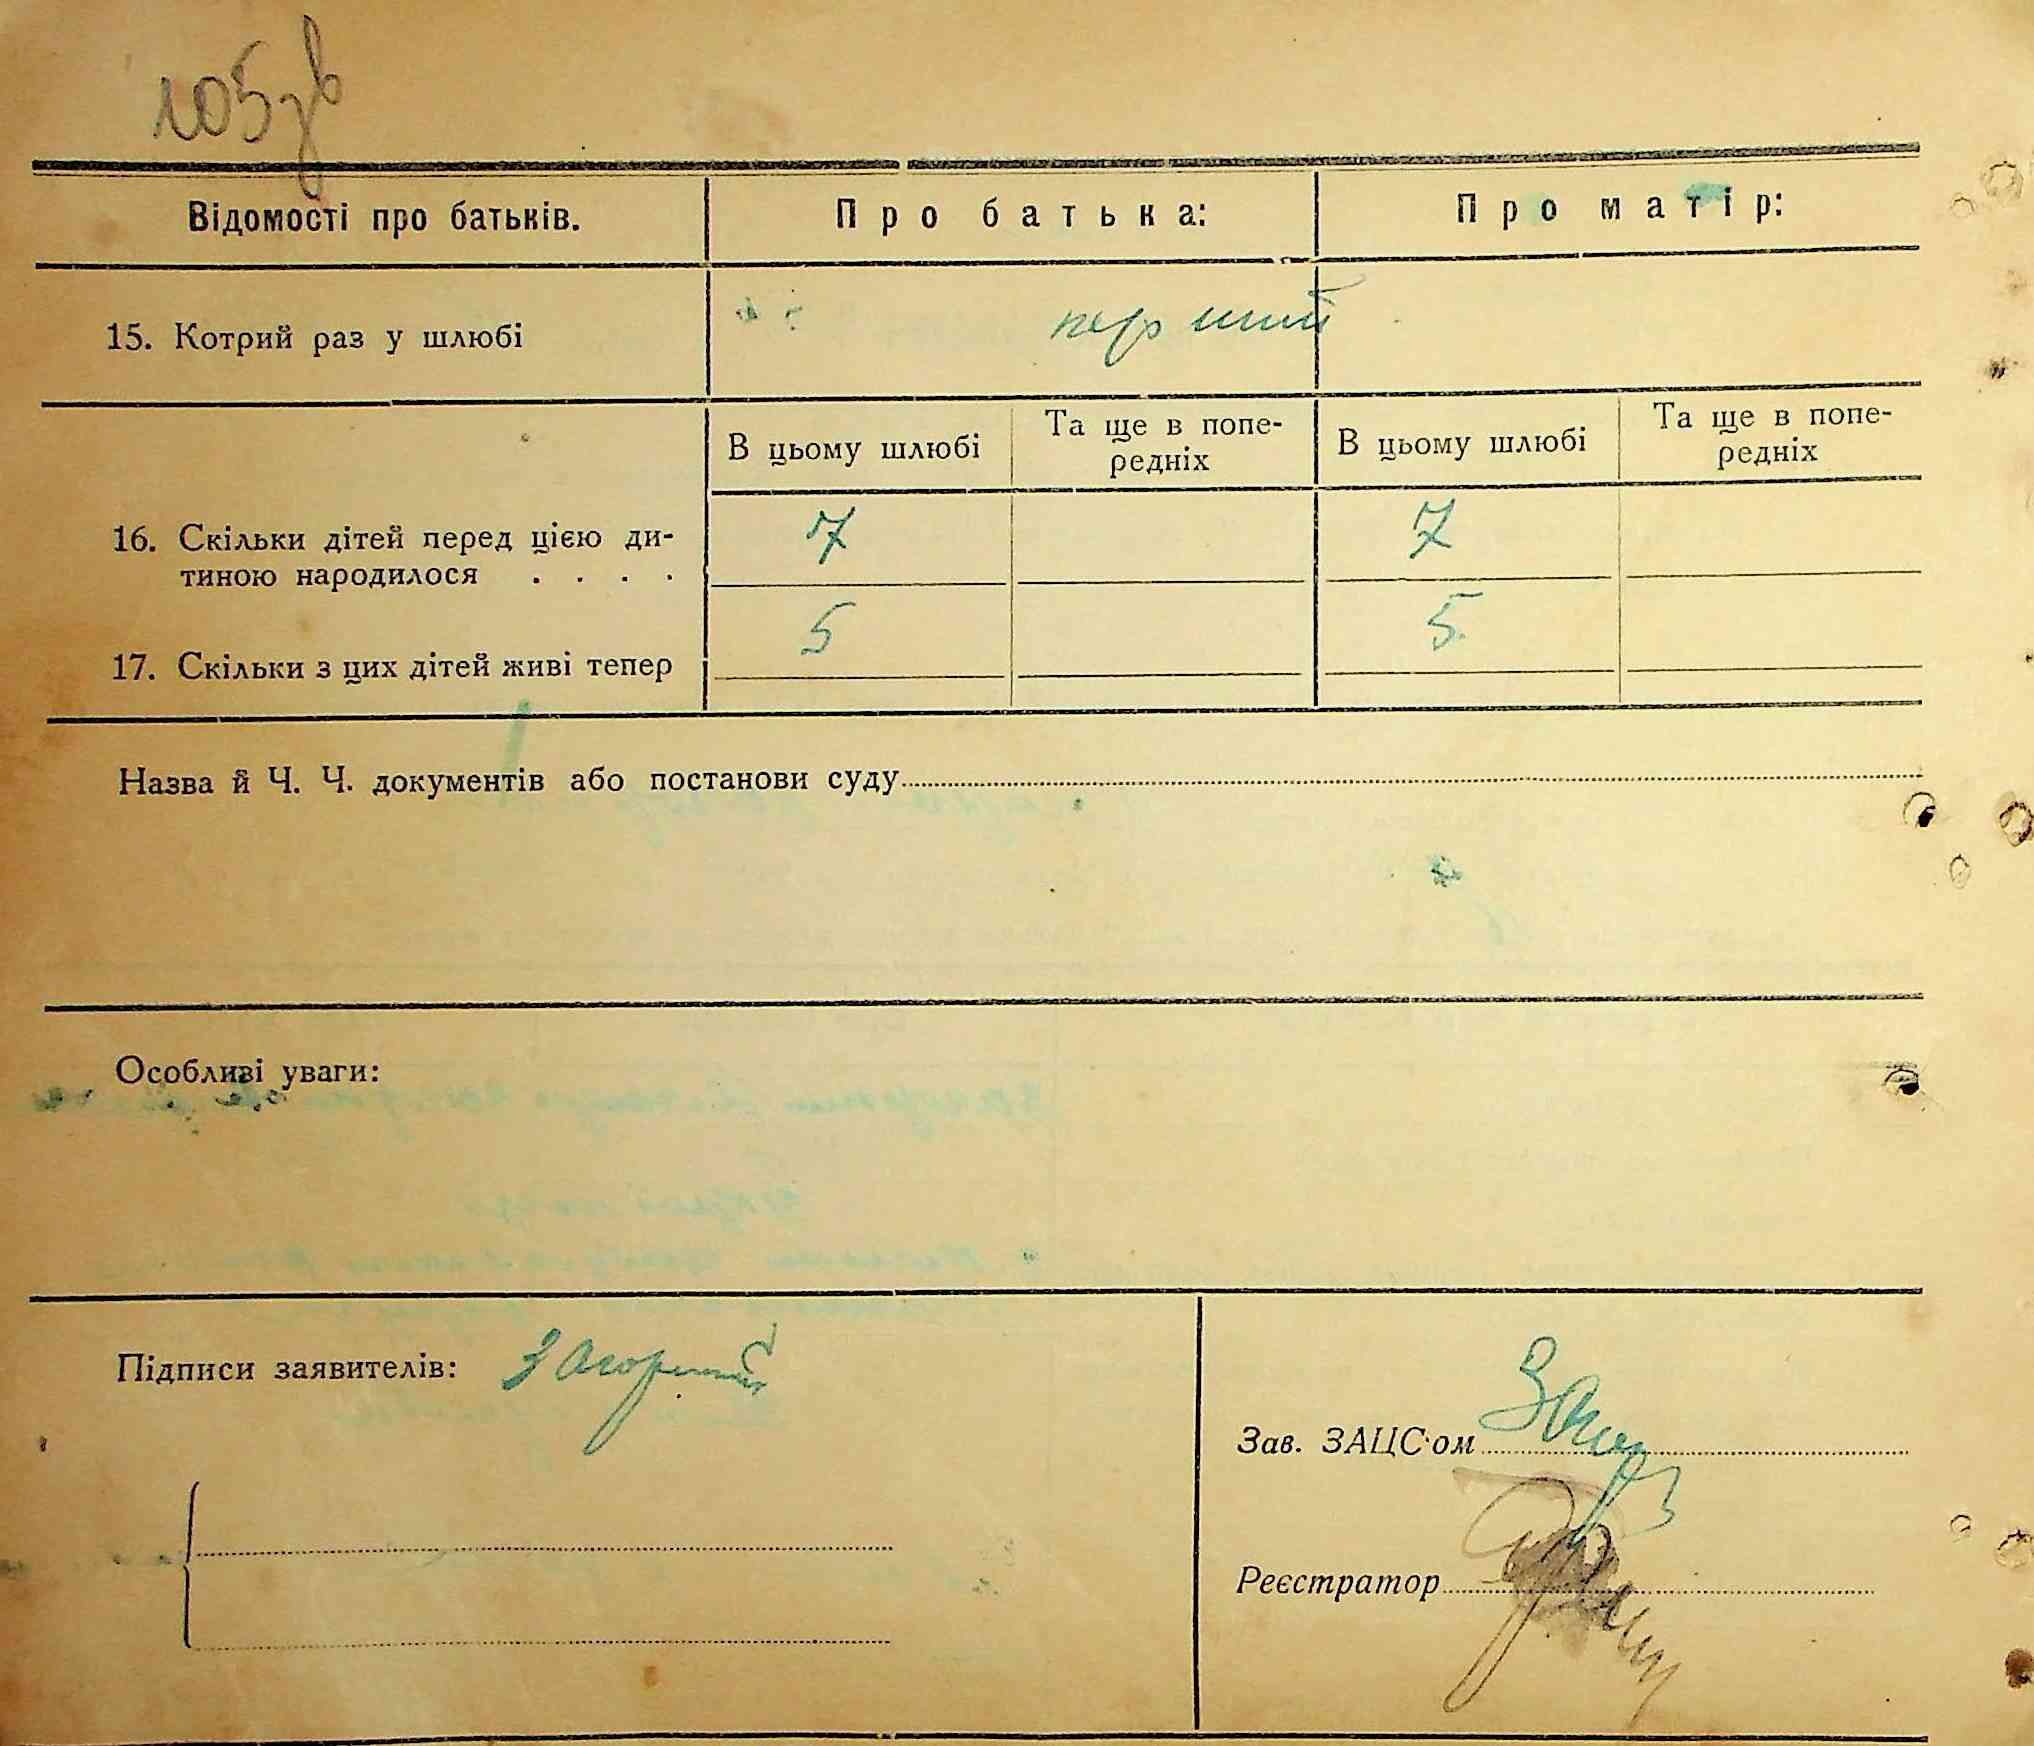 105зв
Відомості про батьків.
Про батька:
Про матір:
15. Котрий раз у шлюбі
перший
В цьому шлюбі
Та ще в попе-
редніх
В цьому шлюбі
Та ще в попе-
редніх
16. Скільки дітей перед цією ди-
тиною народилося . . . .
7
7
17. Скільки з цих дітей живі тепер
5
5
Назва й Ч. Ч. документів або постанови суду
Особливі уваги:
Підписи заявителів:
Зав. ЗАЦС'ом
Реєстратор